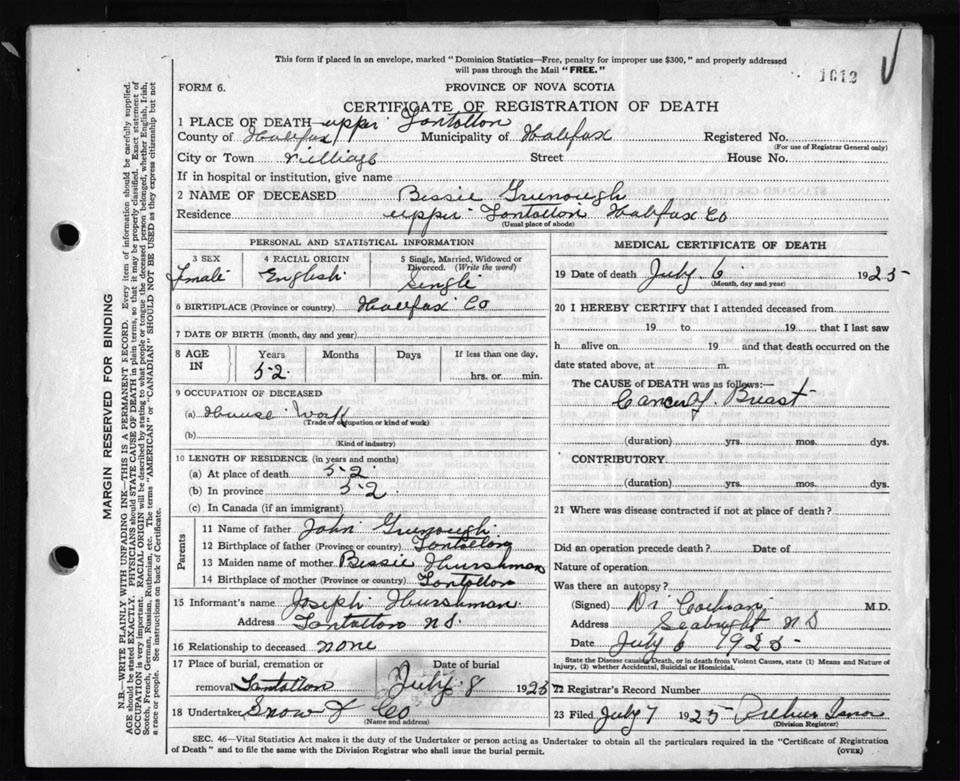 This form if placed in an envelope, marked "Dominion Statistics—Free, penalty for improper use $300," and properly addressed
will pass through the Mail "FREE."
1612
FORM 6.
PROVINCE OF NOVA SCOTIA
CERTIFICATE OF REGISTRATION OF DEATH
1 PLACE OF DEATH upper Tantallon
County of Halifax Municipality of Halifax Registered No.
(For use of Registrar General only)
City or Town village Street House No.
If in hospital or institution, give name
2 NAME OF DECEASED Bessie
Residence upper Tantallon Halifax Co
(Usual place of abode)
PERSONAL AND STATISTICAL INFORMATION
3 SEX 4 RACIAL ORIGIN 5 Single, Married, Widowed or
Divorced. (Write the word)
Female English Single
6 BIRTHPLACE (Province or country) Halifax Co
7 DATE OF BIRTH (month, day and year)
8 AGE IN Years Months Days If less than one day,
52 hrs. or min.
9 OCCUPATION OF DECEASED
(a) House Work
(Trade or occupation or kind of work)
(b)
(Kind of industry)
10 LENGTH OF RESIDENCE (in years and months)
(a) At place of death 52
(b) In province 52
(c) In Canada (if an immigrant)
Parents
11 Name of father John
12 Birthplace of father (Province or country) Tantallon
13 Maiden name of mother Bessie Hurshman
14 Birthplace of mother (Province or country) Tantallon
15 Informant's name Joseph Hurshman
Address Tantallon N S.
16 Relationship to deceased none
17 Place of burial, cremation or Date of burial
removal Tantallon July 8 1925
18 Undertaker Snow & Co
(Name and address)
MEDICAL CERTIFICATE OF DEATH
19 Date of death July 6 1925
(Month, day and year)
20 I HEREBY CERTIFY that I attended deceased from
19 to 19 that I last saw
h alive on 19 and that death occurred on the
date stated above, at m.
The CAUSE of DEATH was as follows:—
Cancer of Breast
(duration) yrs. mos. dys.
CONTRIBUTORY
(duration) yrs. mos. dys.
21 Where was disease contracted if not at place of death?
Did an operation precede death? Date of
Nature of operation
Was there an autopsy?
(Signed) Dr Cochran M.D.
Address Seabright N S
Date July 6 1925
State the Disease causing Death, or in death from Violent Causes, state (1) Means and Nature of
Injury, (2) whether Accidental, Suicidal or Homicidal.
22 Registrar's Record Number
23 Filed July 7 1925 Arthur
(Division Registrar)
SEC. 46—Vital Statistics Act makes it the duty of the Undertaker or person acting as Undertaker to obtain all the particulars required in the "Certificate of Registration
of Death" and to file the same with the Division Registrar who shall issue the burial permit. (OVER)
MARGIN RESERVED FOR BINDING
N.B.—WRITE PLAINLY WITH UNFADING INK—THIS IS A PERMANENT RECORD. Every item of information should be carefully supplied.
AGE should be stated EXACTLY. PHYSICIANS should STATE CAUSE OF DEATH in plain terms, so that it may be properly classified. Exact statement of
OCCUPATION is very important. RACIAL ORIGIN will be described by stating to what people or tongue the deceased person belonged, whether English, Irish,
Scotch, French, German, Russian, Ruthenian, etc. The terms "AMERICAN" or "CANADIAN" SHOULD NOT BE USED as they express citizenship but not
a race or people. See instructions on back of Certificate.